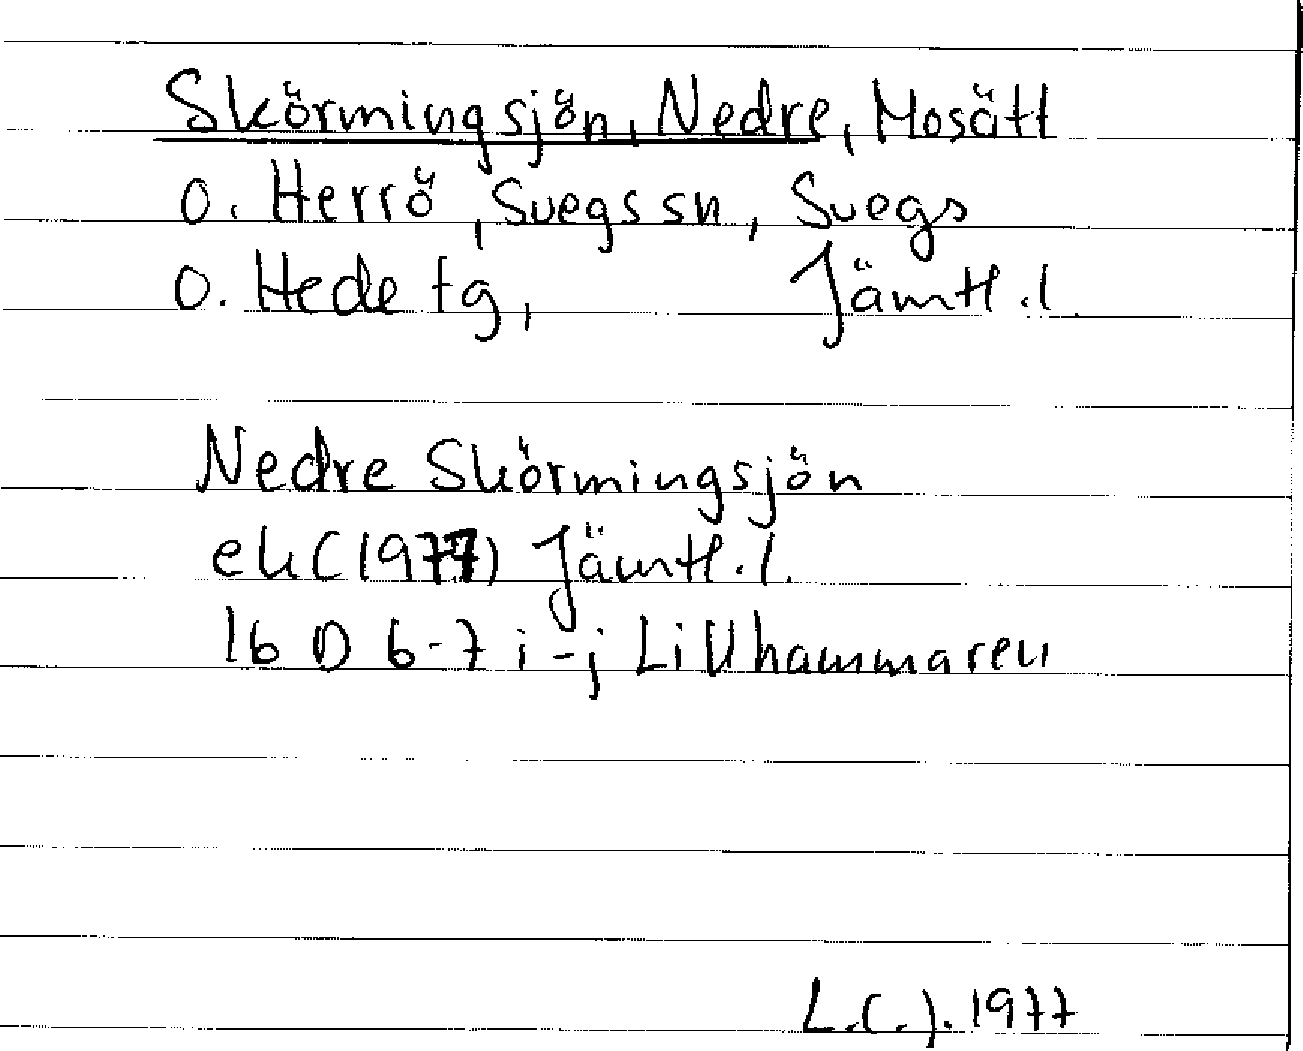 Skörmingsjön, Nedre, Mosätt
o. Herrö, Svegs sn, Svegs
o. Hede tg, Jämtl. l
Nedre Skörmingsjön
ek (1977) Jämtl. l.
16 D 6-7 i-j Lillhammaren
L.C.J. 1977